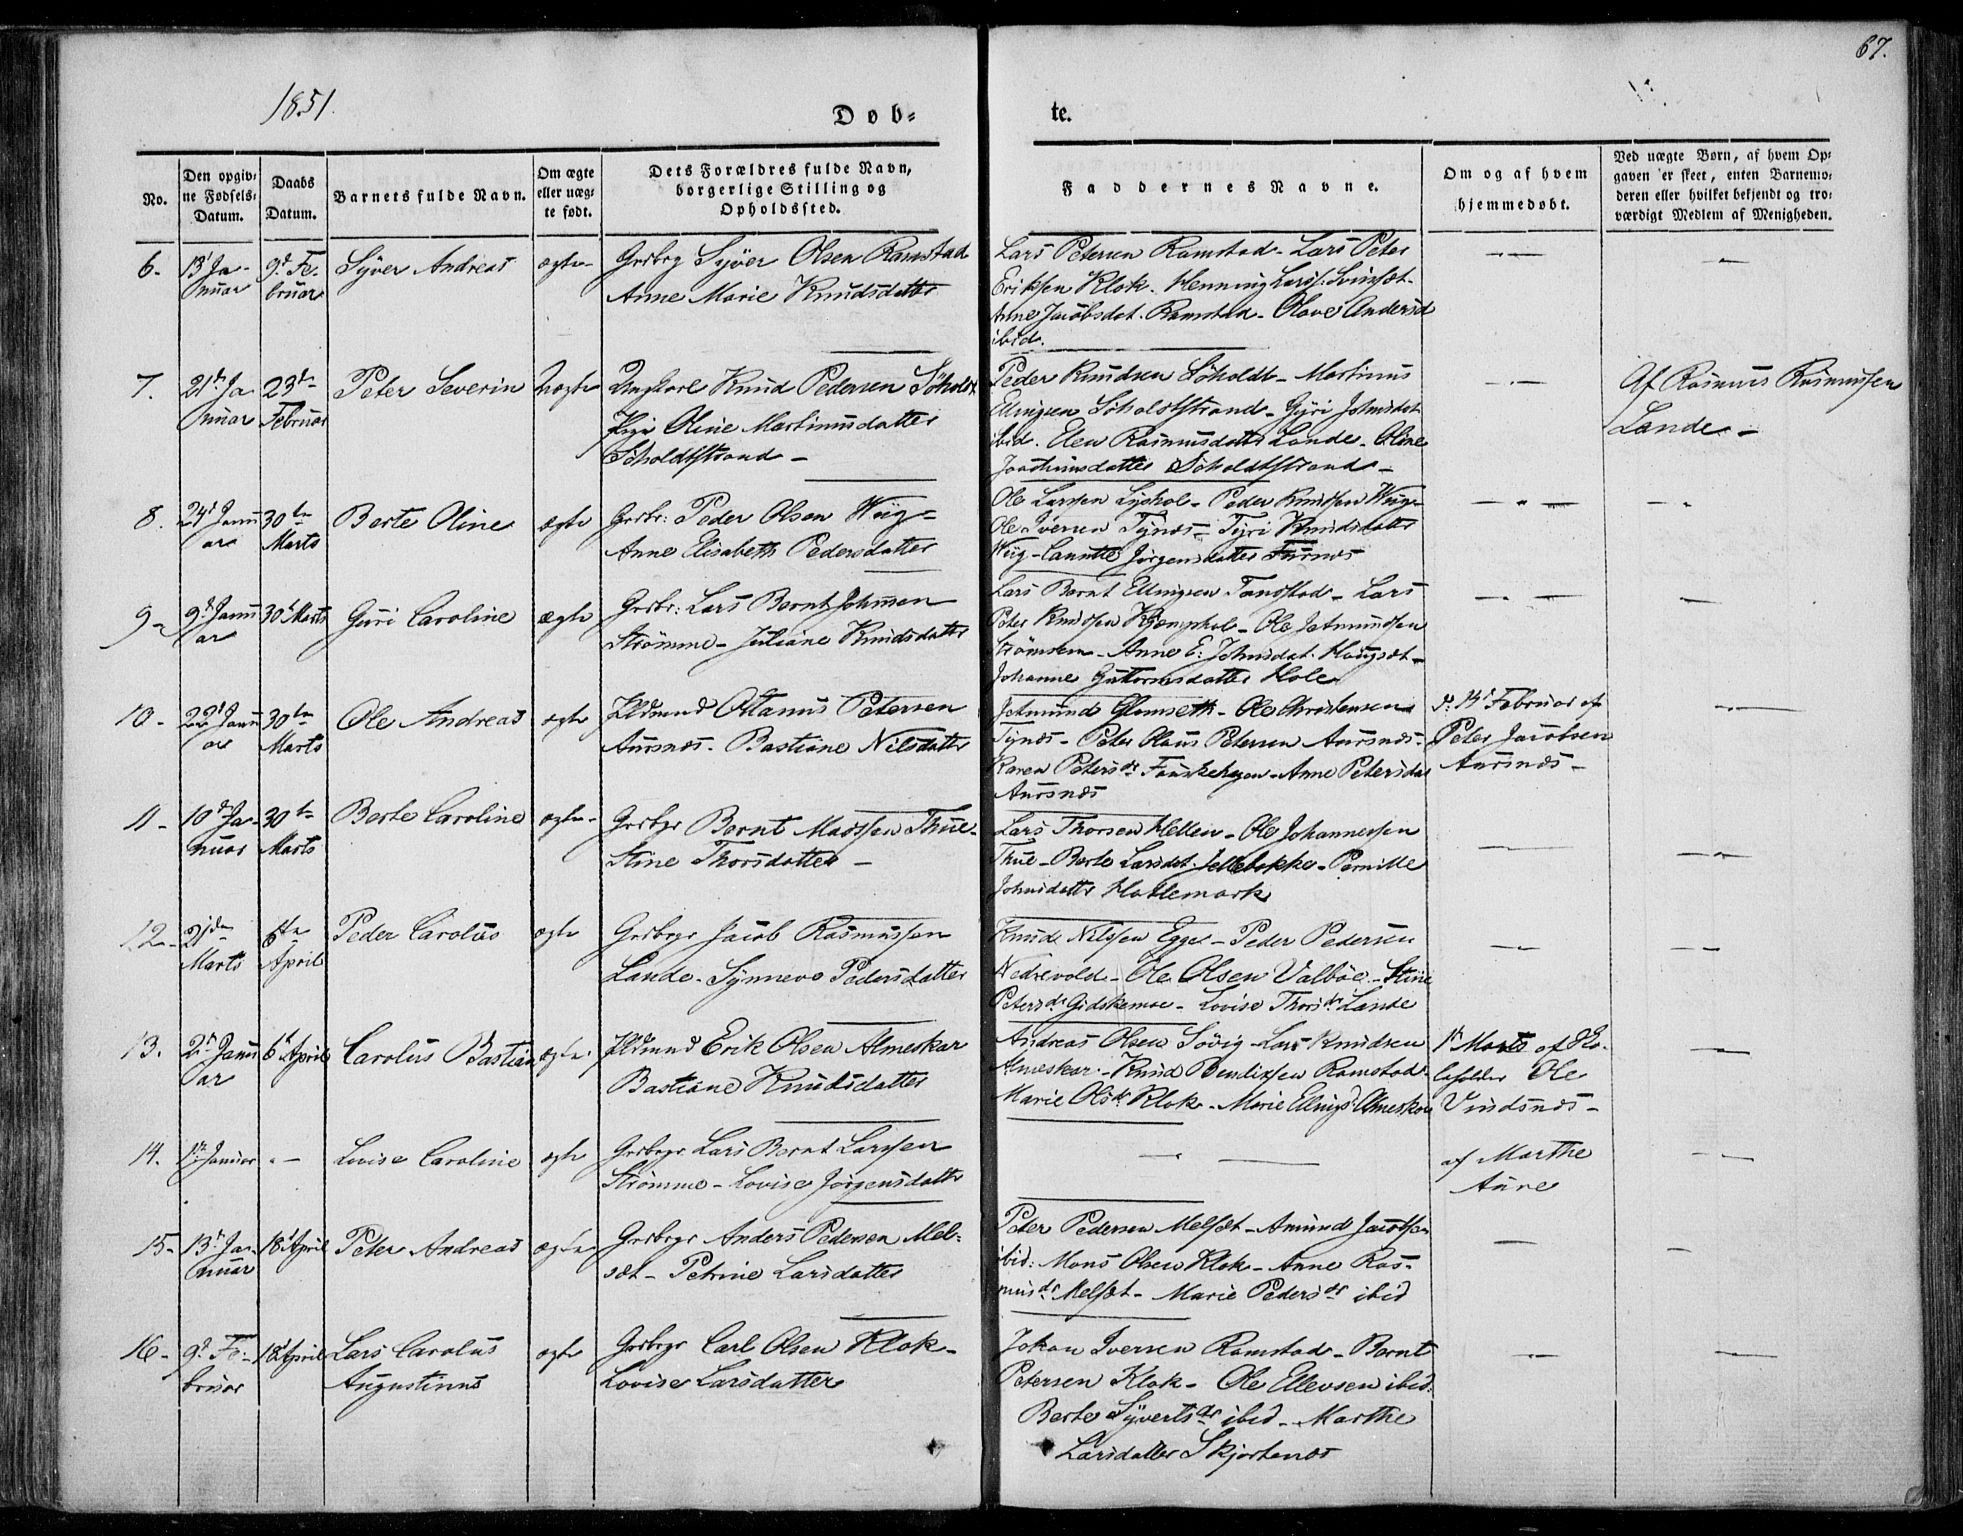 67.
1851.
Døb=
te.
No.
Den opgiv=
ne Fødsels=
Datum.
Daabs
Datum.
Barnets fulde Navn.
Om ægte
eller uæg=
te født.
Dets Forældres fulde Navn,
borgerlige Stilling og
Opholdssted.
Faddernes Navne.
Om og af hvem
hjemmedøbt.
Ved uægte Børn, af hvem Op=
gaven er skeet, enten Barnemo=
deren eller hvilket bekjendt og tro=
værdigt Medlem af Menigheden.
6. 13 Ja- 9d Fe- Syver Andreas ægte Grdbrg Syver Olsen Ramstad
nuar bruar Anne Marie Knudsdatter
Lars Petersen Ramstad - Lars Peter
Eriksen Klok. Henning Larss: Svinsæt-
Anne Jacobsdat. Ramstad - Olave Andersd
ibid.
7. 21d Ja 23de Peter Severin Uægte Ungkarl Knud Pedersen Søholt
nuar Februar Pige Oline Martinusdatter
Søholdtstrand -
Peder Knudsen Søholdt - Martinus
Ellingsen Søholdtstrand - Gyri Johnsdat
ibid. Elen Rasmusdatter Lande - Oline
Joachimsdatter Søholdtstrand -
Af Rasmus Rasmussen
Lande -
8. 24d Janu 30te Berte Oline ægte Grdbr: Peder Olsen Weig-
ar Marts Anne Elisabeth Pedersdatter
Ole Larsen Lyshol - Peder Knudsen Weig-
Ole Iversen Tynæs - Gyri Knudsdatter
Weig - Jørgensdatter Fursnæs
9- 9d Janu 30d Marts Guri Caroline ægte Grdbr: Lars Bernt Johnsen
ar Strømme - Juliane Knudsdatter
Lars Bernt Ellingsen Tandstad - Lars
Peter Knudsen Kjemphol - Ole Jetmundsen
Strømmen - Anne E: Johnsdat. Haugsæt-
Johanne Guttormsdatter Hole
10- 22d Janu 30te Ole Andreas ægte Ildmand Ottanus Petersen
ar Marts Aursnæs. Bastiane Nilsdatter
Jetmund Glomseth - Ole Christensen
Tynæs - Peter Olaus Petersen Aursnæs-
Karen Petersdr Fauskehagen - Anne Petersdat
Aursnæs
d. 14d Februar af
Peter Jacobsen
Aursnæs -
11- 10d Ja- 30te Berte Caroline ægte- Grdbgr Bernt Madssen Thue-
nuar Marts Stine Thorsdatter -
Lars Thorsen Hellen - Ole Johannessen
Thue - Berte Larsdat. Jellebakke - Pernille
Johnsdatter Hatlemark
12- 21de 6te Peder Carolus ægte Grdbrgr Jacob Rasmussen
Marts April Lande - Synneve Pedersdatter
Knud Nilssen Egge - Peder Pedersen
Nedrevold - Ole Olsen Valbøe - Stine
Petersdr Gidskemoe - Lovise Thorsdr Lande
13. 2d Janu 6d April Carolus Bastian ægte. Ildmand Erik Olsen Almeskar
ar Bastiane Knudsdatter
Andreas Olsen Søvig - Lars Knudsen
Almeskar - Knud Bendixsen Ramstad-
Marie Olsdr Klok - Marie Ellings: Almeskar
1d Marts af Sko-
leholder Ole
Vindsnæs -
14. Januar Lovise Caroline ægte Grdbrgr Lars Bernt Larssen
Strømme - Lovise Jørgensdatter
af Marthe
Aure
15- 13d Ja- 18d April Peter Andreas ægte Grdbrgr Anders Pedersen Mel-
nuar sæt - Petrine Larsdatter
Peter Pedersen Melsæt - Amund Jacobsen
ibid: Mons Olsen Klok - Anne Ras-
musdr Melsæt - Marie Pedersdr ibid
16- 9d Fe- 18d April Lars Carolus ægte Grdbrgr Carl Olsen Klok-
bruar Augustinus Lovise Larsdatter
Johan Iversen Ramstad - Bernt
Petersen Klok - Ole Ellevsen ibid.
Berte Syvertsdr ibid - Marthe
Larsdatter Skjortenæs